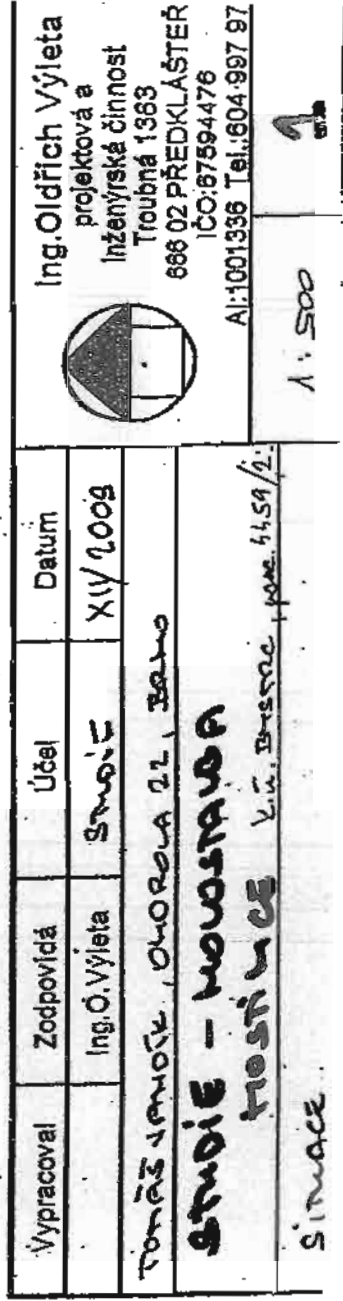 Vypracoval Zodpovídá Účel Datum
Ing.O.Výleta STUDIE XII/2009
TOMÁŠ VANDÍK, OKOROLA 22, BRNO
STUDIE – NOVOSTAVBA
HOSTINCE k.ú. BYSTRC, parc. 4459/2.
SITUACE
Ing.Oldřich Výleta
projektová a
Inženýrská činnost
Troubná 1363
666 02 PŘEDKLÁŠTEŘ
IČO:67594476
AI:1001336 Tel.:604 997 97
1:500
1